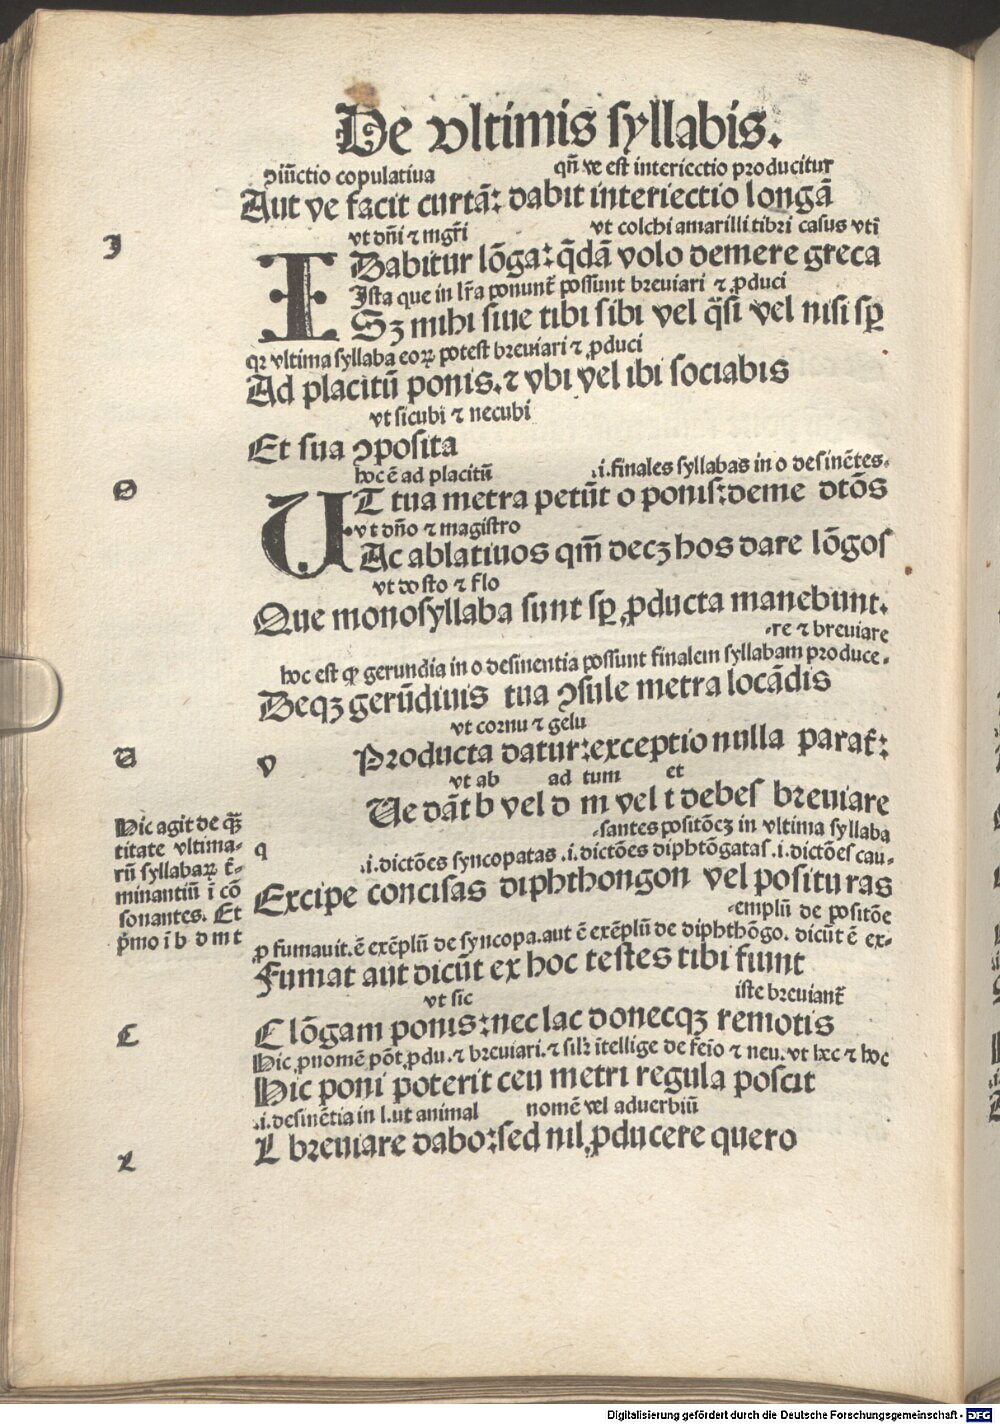 De vltimis syllabis.
ↄiūctio copulatiua qn̄ ve est interiectio producitur
Aut ve facit curtā: dabit interiectio longā
vt dn̄i ⁊ mgr̄i vt colchi amarilli tibri casus vti
I
I Dabitur lōga: qd̄ā volo demere greca
Ista que in lr̄a ponunt̄ possunt breuiari ⁊ ꝓduci
Sꝫ mihi siue tibi sibi vel qsi vel nisi sꝑ
qꝛ vltima syllaba eoꝝ potest breuiari ⁊ ꝓduci
Ad placitū ponis. ⁊ vbi vel ibi sociabis
vt sicubi ⁊ necubi
Et sua ↄposita
hoc ē ad placitū .i. finales syllabas in o desinētes.
O
UT tua metra petūt o ponis: deme dtōs
vt dn̄o ⁊ magistro
Ac ablatiuos qm̄ decꝫ hos dare lōgos
vt do sto ⁊ flo
Que monosyllaba sunt sꝑ ꝓducta manebunt.
re ⁊ breuiare
hoc est ꝙ gerundia in o desinentia possunt finalem syllabam produce-
Deqꝫ gerūdiuis tua ↄsule metra locādis
vt cornu ⁊ gelu
U
v Producta datur: exceptio nulla parat̄:
vt ab ad tum et
Ue dāt b vel d m vel t debes breuiare
santes positōeꝫ in vltima syllaba
Hic agit de qꝫ
titate vltima-
rū syllabaꝝ t̄-
minantiū ī cō
sonantes. Et
pͥmo ī b d m t
q .i. dictōes syncopatas .i. dictōes diphtōgatas .i. dictōes cau-
Excipe concisas diphthongon vel posituras
emplū de positōe
ꝓ fumauit. ē exēplū de syncopa. aut ē exēplū de diphthōgo. dicūt ē ex-
Fumat aut dicūt ex hoc testes tibi fiunt
vt sic iste breuiant̄
C
C lōgam ponis: nec lac donecqꝫ remotis
Hic ꝓnomē pōt ꝓdu. ⁊ breuiari. ⁊ silr̄ ītellige de fēio ⁊ neu. vt hec ⁊ hoc
Hic poni poterit ceu metri regula poscit
.i. desinētia in l. ut animal nomē vel aduerbiū
L
L breuiare dabo: sed nil ꝓducere quero
Digitalisierung gefördert durch die Deutsche Forschungsgemeinschaft - DFG